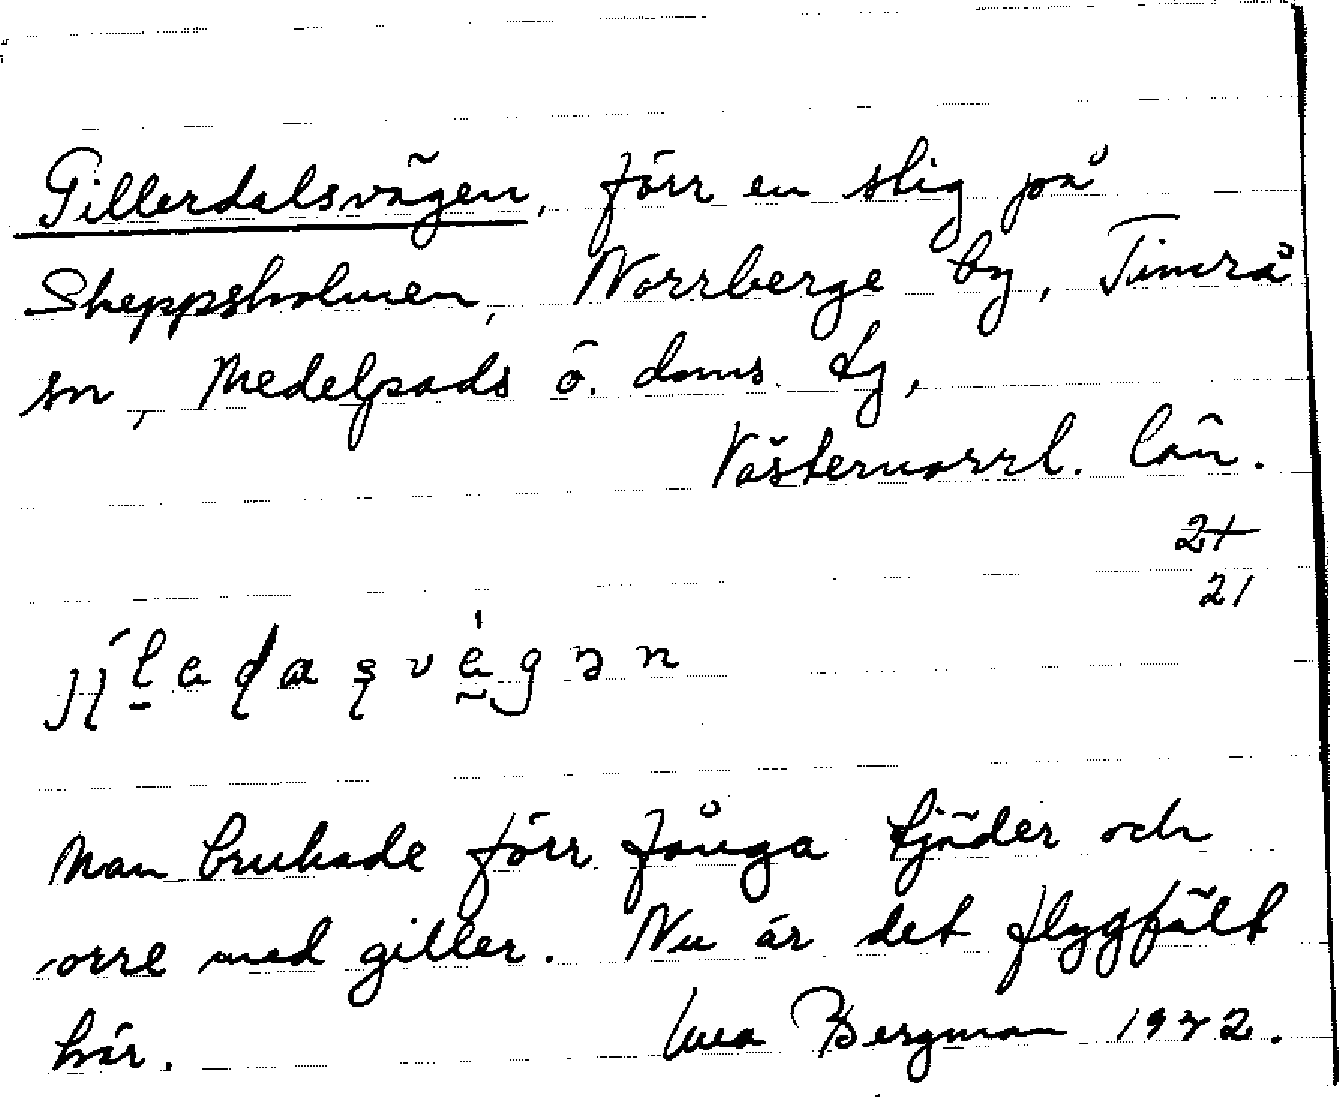 Gillerdalsvägen, förr en stig på
Skeppsholmen, Norrberge by, Timrå
sn, Medelpads ö. doms. tg,
Västernorrl. län.
21
Man brukade förr fånga tjäder och
orre med giller. Nu är det flygfält
här. Bergman 1972.